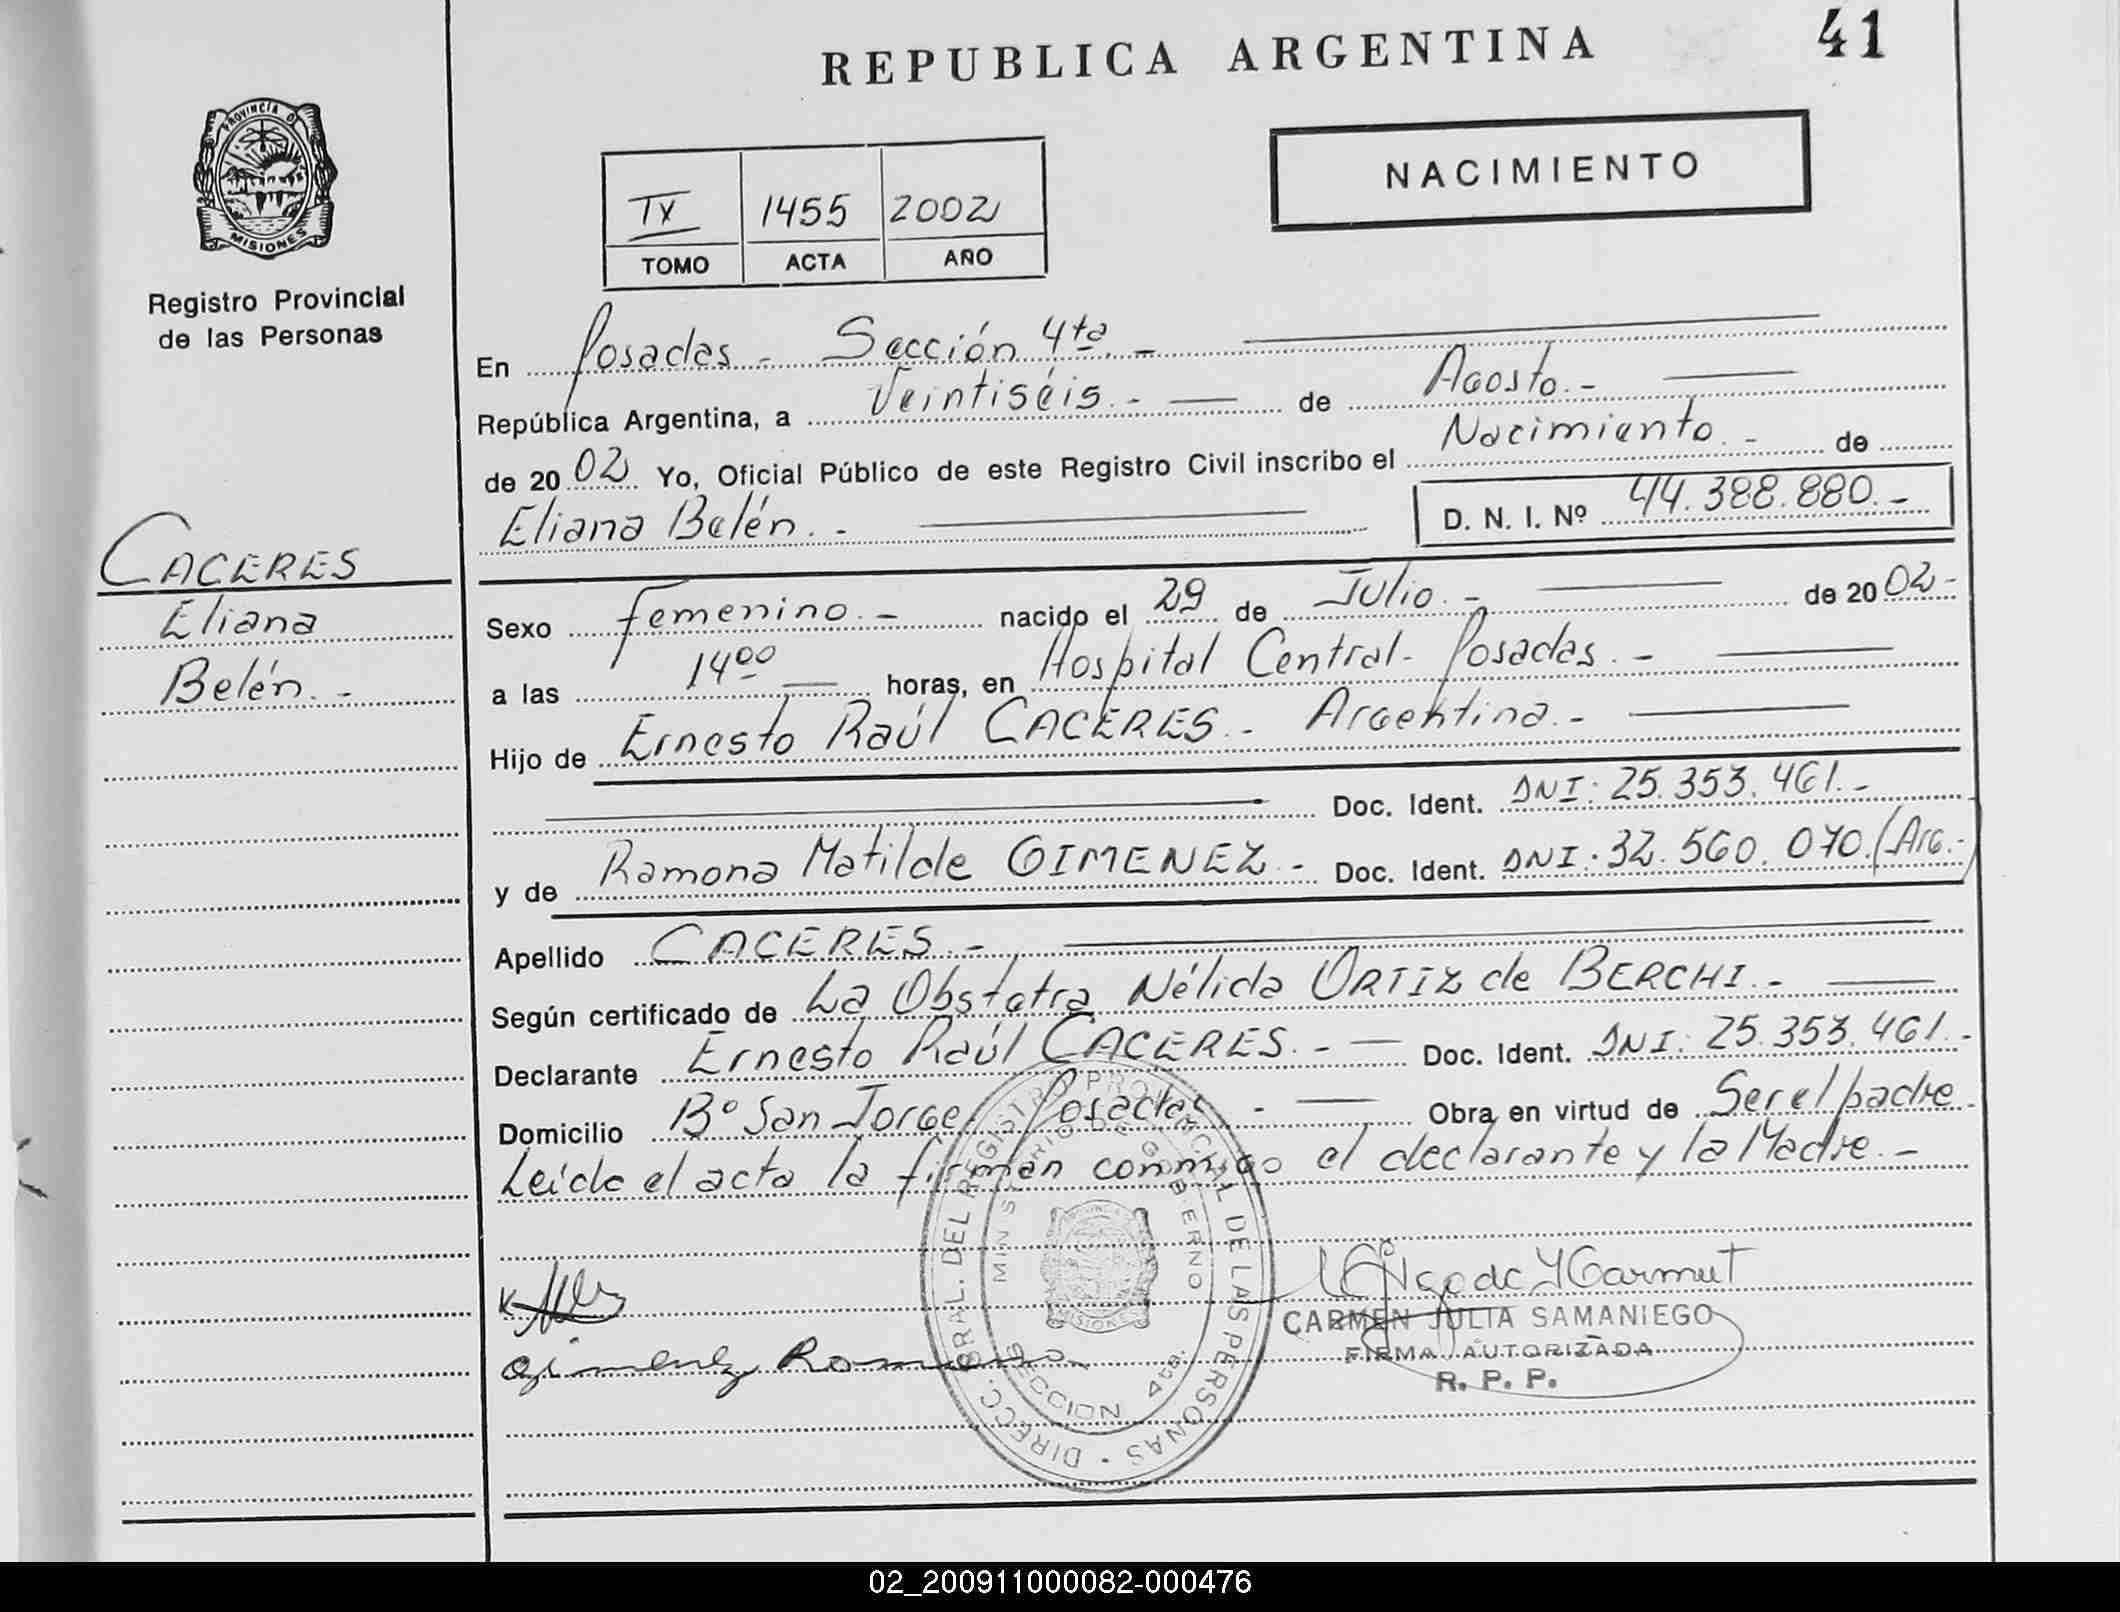 REPUBLICA ARGENTINA
41
NACIMIENTO
PROVINCIA D
MISIONES
Registro Provincial
de las Personas
IX 1455 2002
TOMO ACTA AÑO
En Posadas - Sección 4ta. -
República Argentina, a Veintiséis. - de Agosto. -
de 2002 Yo, Oficial Público de este Registro Civil inscribo el Nacimiento. - de
Eliana Belén. - D. N. I. Nº 44.388.880. -
CACERES
Eliana
Belén. -
Sexo femenino. - nacido el 29 de Julio. - de 2002-
a las 14⁰⁰ horas, en Hospital Central- Posadas. -
Hijo de Ernesto Raúl CACERES - Argentina. -
Doc. Ident. DNI: 25.353.461. -
y de Ramona Matilde GIMENEZ - Doc. Ident. DNI: 32.560.070. (Arg.-)
Apellido CACERES. -
Según certificado de La Obstetra Nélida ORTIZ de BERCHI. -
Declarante Ernesto Raúl CACERES. - Doc. Ident. DNI: 25.353.461. -
Domicilio Bº San Jorge, Posadas - Obra en virtud de Ser el padre
Leída el acta la firman conmigo el declarante y la Madre. -
Gimenez Ramona
DIRECC. GRAL. DEL REGISTRO PROVINCIAL DE LAS PERSONAS
MINISTERIO DE GOBIERNO
MISIONES
SECCION 4ta.
CARMEN JULIA SAMANIEGO
FIRMA AUTORIZADA
R. P. P.
02_200911000082-000476